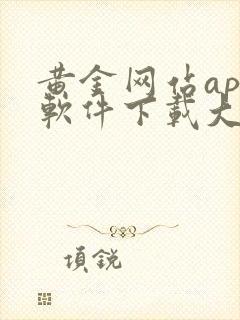 黄金网佔ap
軟件下載大
項銳